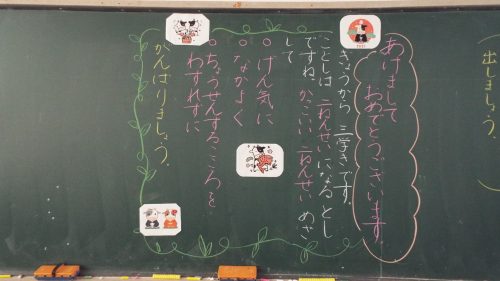 出しましょう。
あけまして
おめでとうございます
きょうから 三学きです。
ことしは 二ねんせいになる とし
ですね。かっこいい 二ねんせい めざ
して
○げん気に
○なかよく
○ちょうせんするこころを
わすれずに
がんばりましょう。
2021